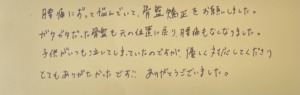 腰痛によって悩んでいて、骨盤矯正をお願いしました。
ガタガタだった骨盤も元の位置に戻り、腰痛もなくなりました。
子供がいつも泣いてしまっていたのですが、優しく対応してくださり
とてもありがたかったです!! ありがとうございました。